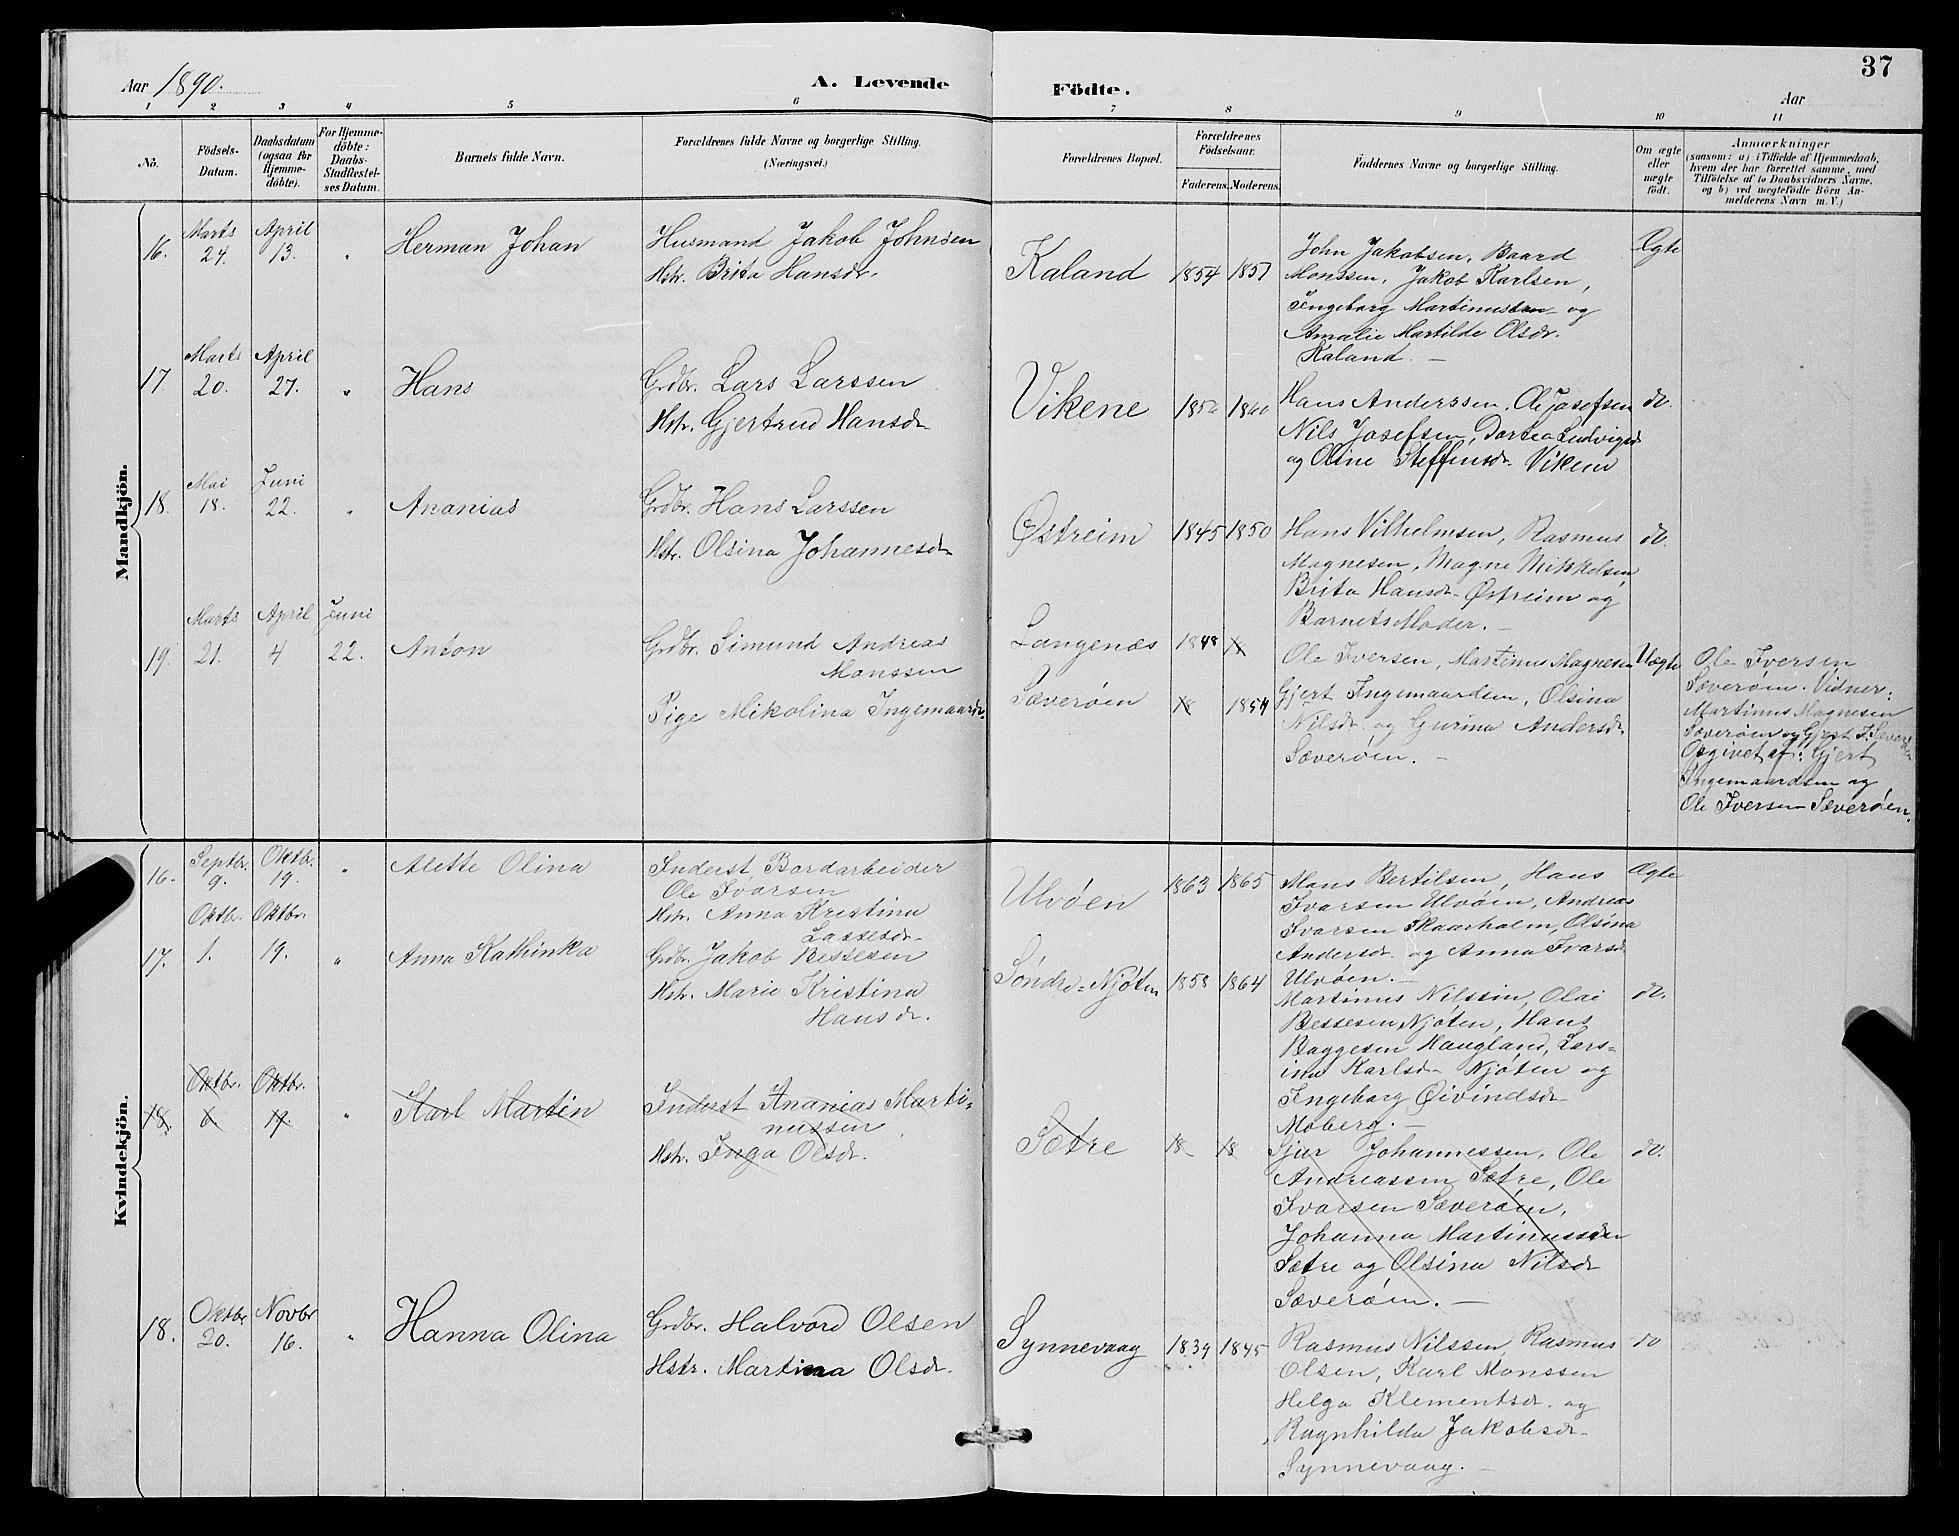 Aar 1890.
A. Levende Fødte.
Aar
37
1 2 3 4 5 6 7 8 9 10 11
No.
Födsels-Datum.
Daabsdatum (ogsaa for Hjemme-döbte).
For Hjemme-döbte: Daabs-Stadfæstel-ses Datum.
Barnets fulde Navn.
Forældrenes fulde Navne og borgerlige Stilling. (Næringsvei.)
Forældrenes Bopæl.
Forældrenes Födselsaar.
Faderens. Moderens.
Faddernes Navne og borgerlige Stilling.
Om ægte eller uægte födt.
Anmærkninger
(saasom: a) i Tilfælde af Hjemmedaab,
hvem der har forrettet samme, med
Tilföielse af to Daabsvidners Navne,
og b) ved uægtefödte Börn An-
melderens Navn m. V.)
Mandkjön.
16. Marts 24. April 13. " Herman Johan
Husmand Jakob Johnsen
Hstr. Brita Hansdr.
Kaland 1854 1857
John Jakobsen, Baard
Monssen, Jakob Karlsen,
Ingeborg Martinusdr og
Amalie Martilde Olsdr.
Kaland. —
Ægte
17. Marts 20. April 27. " Hans
Grdbr. Lars Larssen
Hstr. Gjertrud Hansdr
Vikene 1860
Hans Anderssen, Ole Josefsen
Nils Josefsen, Dortea Ludvigsd
og Oline Steffensdr. Vikene
do.
18. Mai 18. Juni 22. " Ananias
Grdbr. Hans Larssen
Hstr. Olsina Johannesdr
Østreim 1845 1850
Hans Vilhelmsen, Rasmus
Magnesen, Magne Mikkelsen
Brita Hansdr Østreim og
Barnets Moder. —
do.
19. Marts 21. April 4 Juni 22. Anton
Grdbr. Simund Andreas
Monssen
Pige Mikolina Ingemaardr.
Langenæs 1848 18
Sæverøen 18 1854
Ole Iversen, Martinus Magnesen
Gjert Ingemaardsen, Olsina
Nilsdr. og Gurina Andersdr
Sæverøen. —
Uægte
Ole Iversen
Sæverøen. Vidner:
Martinus Magnesen
Sæverøen og Gjert I. Sæverøen
Opgivet af: Gjert
Ingemaardsen og
Ole Iversen Sæverøen.
Kvindekjön.
16. Septbr. 9. Oktbr. 19. " Alette Olina
Inderst, Bordarbeider
Ole Ivarsen
Hstr. Anna Kristina
Lassesdr
Ulvøen 1863 1865
Mons Bertilsen, Hans
Ivarsen Ulvøen, Andreas
Ivarsen Skaarholm, Olsina
Andersdr og Anna Ivarsd
Ulvøen. —
Ægte
17. Oktbr. 1. Oktbr. 19. " Anna Kathinka
Grdbr. Jakob Bessesen
Hstr. Marie Kristina
Hansdr.
Søndre-Njøten 1858 1864
Martinus Nilssin, Olai
Bessesen Njøten, Hans
Baggesen Haugland, Lars-
ina Karlsdr Njøten og
Ingeborg Øivindsdr
Moberg. —
do.
18. Oktbr. 6 Oktbr. 17. " Karl Martin
Inderst Ananias Marti-
nussen
Hstr. Inga Olsdr.
Sætre 18 18
Sjur Johannessen, Ole
Andreassen Sætre, Ole
Ivarsen Sæverøen,
Johanna Martinusdr
Sætre og Olsina Nilsdr
Sæverøen. —
do.
18. Oktbr 20. Novbr 16. " Hanna Olina
Grdbr. Halvord Olsen
Hstr. Martina Olsdr.
Synnevaag 1839 1845
Rasmus Nilssen, Rasmus
Olsen, Karl Monssen
Helga Klementsdr. og
Ragnhilda Jakobsdr
Synnevaag. —
do